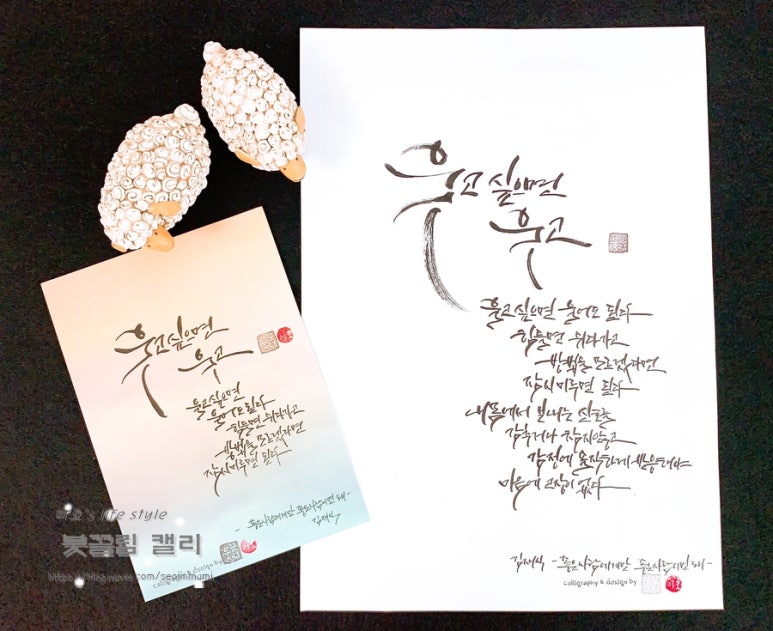 울고싶으면
울고
울고싶으면
울어도된다
힘들면 쉬다가고
방법을 모르겠다면
잠시미루면 된다
- 좋은사람에게만 좋은사람이면 돼 -
김재식
calligraphy & design by
's life style
붓끌림 캘리
울고 싶으면
울고
울고싶으면 울어도 된다
힘들면 쉬다가고
방법을 모르겠다면
잠시미루면 된다
내몸에서 보내는 신호를
감추거나 참지말고
감정에 솔직하게 반응해야
마음에 고장이 없다
김재식 - 좋은사람에게만 좋은사람이면 돼 -
calligraphy & design by